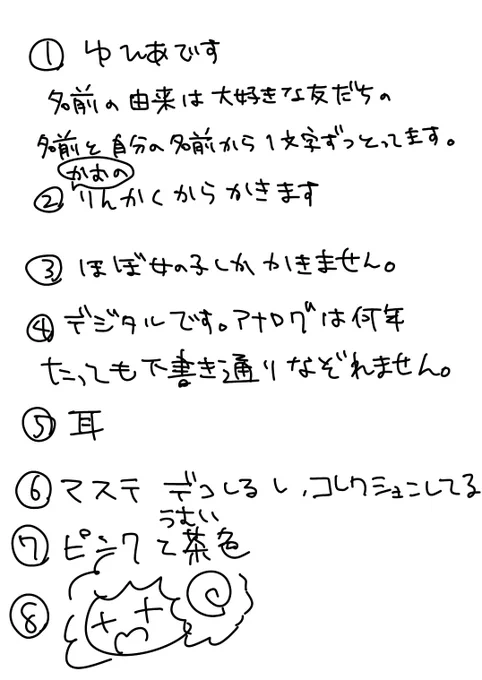 ① ゆひあです
名前の由来は大好きな友だちの
名前と自分の名前から1文字ずつとってます。
かおの
② りんかくからかきます
③ ほぼ女の子しかかきません。
④ デジタルです。アナログは何年
たっても下書き通りなぞれません。
⑤ 耳
⑥ マステ デコしるし、コレクションしてる
うすい
⑦ ピンクと茶色
⑧